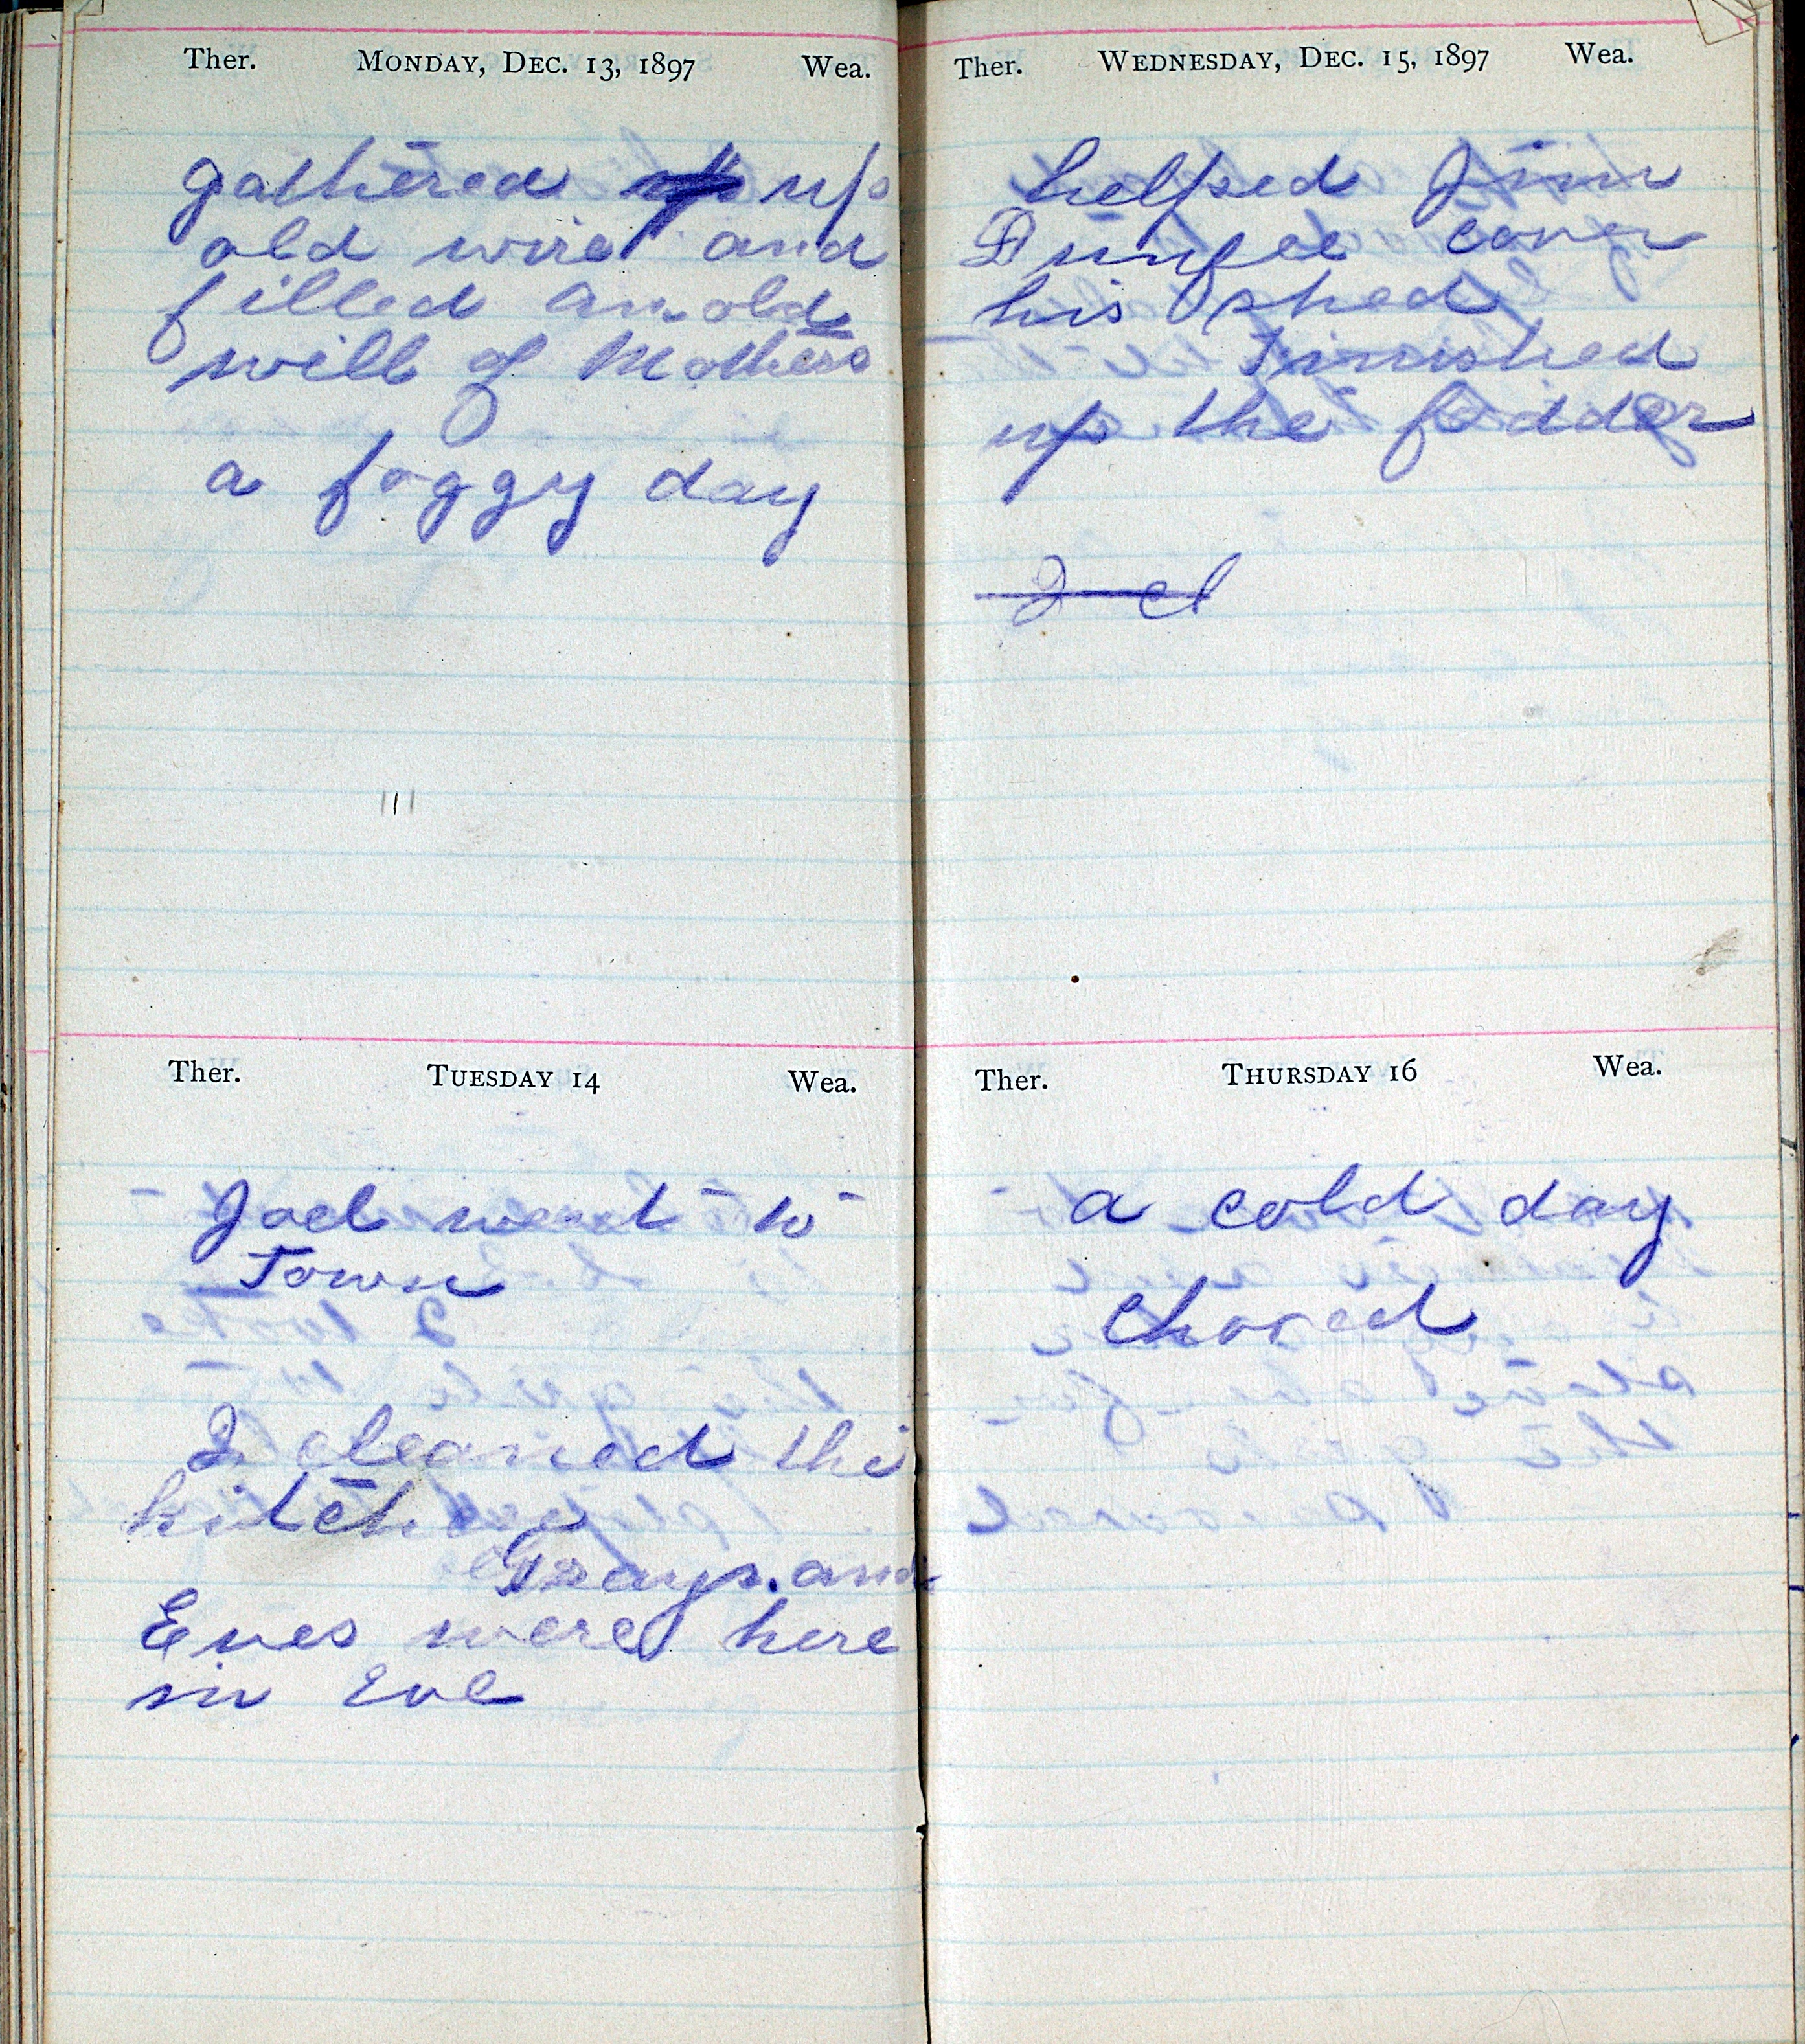 Ther. MONDAY, DEC. 13, 1897 Wea.
gathered up up
old wire and
filled an old
will of Mothers
a foggy day
Ther. TUESDAY 14 Wea.
Joel went to
Town
I cleaned the
kitchen
Grays. and
Enes were here
in Eve
Ther. WEDNESDAY, DEC. 15, 1897 Wea.
helped Jim
Dunfee cover
his shed
Finished
up the fodder
I cl
Ther. THURSDAY 16 Wea.
a cold day
chored